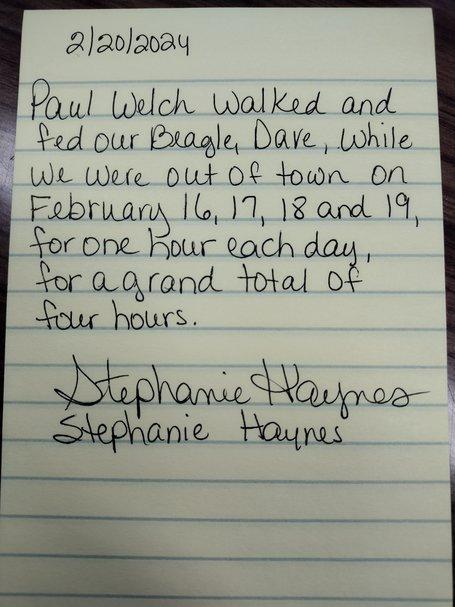 2/20/2024
Paul Welch walked and
fed our Beagle, Dave, while
we were out of town on
February 16, 17, 18 and 19,
for one hour each day,
for a grand total of
four hours.
Stephanie Haynes
Stephanie Haynes